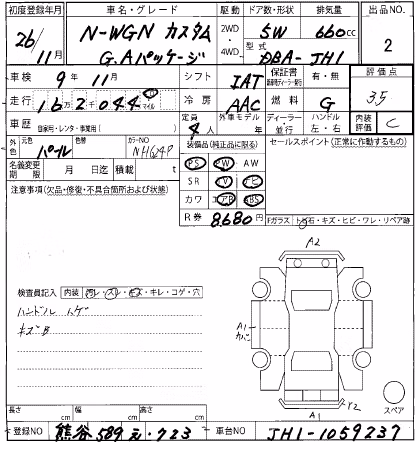 初度登録年月 車名・グレード 駆動 ドア数・形状 排気量 出品NO
26/11月 N-WGN カスタム G.Aパッケージ 2WD・4WD 5W 660cc 2
型式 DBA-JH1
車検 9年11月 シフト IAT 保証書 有・無 評価点
走行 16万2千044マイル 冷房 AAC 燃料 G 3.5
車歴 自家用・レンタ・事業用( ) 定員 4人 外車モデル 年 ディーラー・並行 ハンドル 左・右 内装評価 C
外色 元色 パール 色替 カラーNO NH624P 装備品(純正品に限る) セールスポイント(正常に作動するもの)
名義変更期限 月 日迄 積載 t
PS PW AW
注意事項(欠品・修復・不具合箇所および状態) SR CV ナビ
カワ エアB ABS
R券 8,680 Fガラス トビ石・キズ・ヒビ・ワレ・リペア跡
A2
検査員記入 内装 汚レ・スレ・キズ・キレ・コゲ・穴
ハンドル ハゲ
キズB
A1
カバー
スペア
A1 Y2
長さ cm 幅 cm 高さ cm
登録NO 熊谷 589 え・723 車台NO JH1-1059237